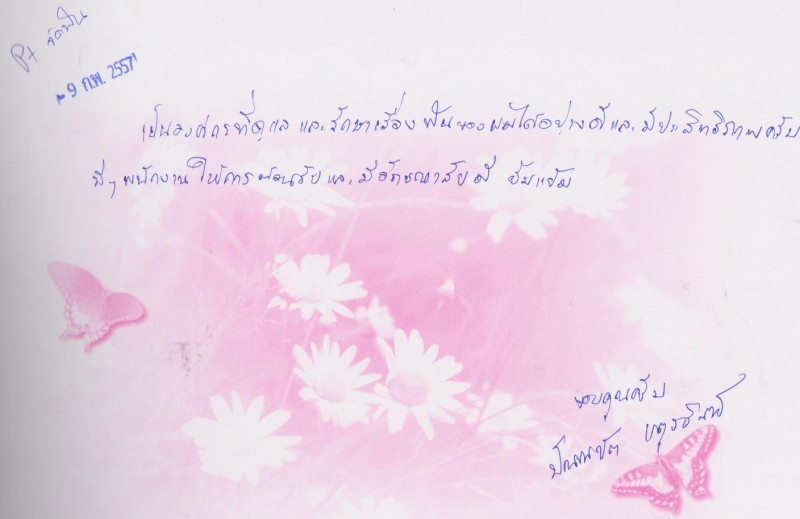 Pt จัดฟัน
- 9 ก.พ. 2557
เป็นองค์กรที่ดูแล และรักษาเรื่อง ฟันของผมได้อย่างดีและมีประสิทธิภาพครับ
พี่ๆ พนักงาน ให้การต้อนรับและมีอัธยาศัยดี ยิ้มแย้ม
ขอบคุณครับ